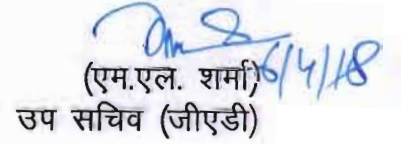 6/4/18
(एम.एल. शर्मा)
उप सचिव (जीएडी)